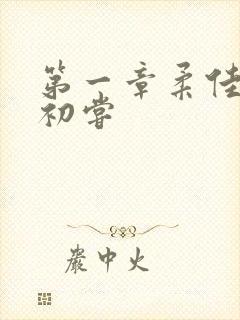 第一章柔佳
初嘗
嚴中火